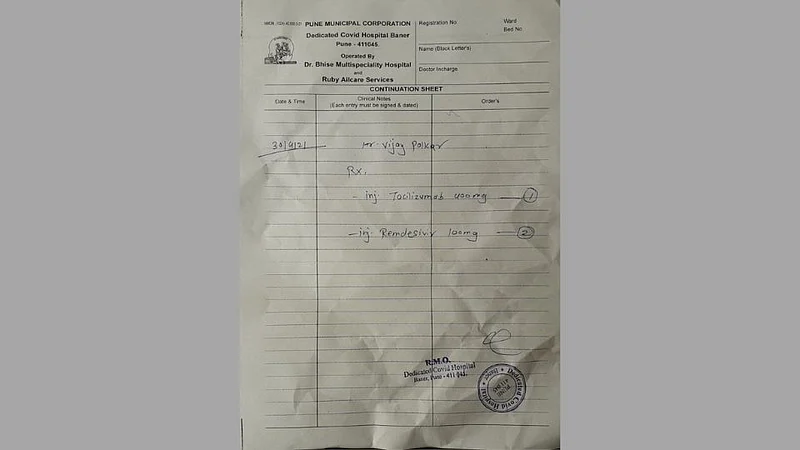 PUNE MUNICIPAL CORPORATION
Dedicated Covid Hospital Baner
Pune - 411045.
Operated By
Dr. Bhise Multispeciality Hospital
and
Ruby Allcare Services
Registration No
Ward
Bed No
Name (Black Letter's)
Doctor Incharge
CONTINUATION SHEET
Date & Time
Clinical Notes
(Each entry must be signed & dated)
Order's
30/4/21 Mr. Vijay Palkar
Rx,
- inj Tocilizumab 400mg — 1
- inj. Remdesivir 100mg — 2
R.M.O.
Dedicated Covid Hospital
Baner, Pune - 411 045.
Dedicated Covid Hospital
Baner
PUNE